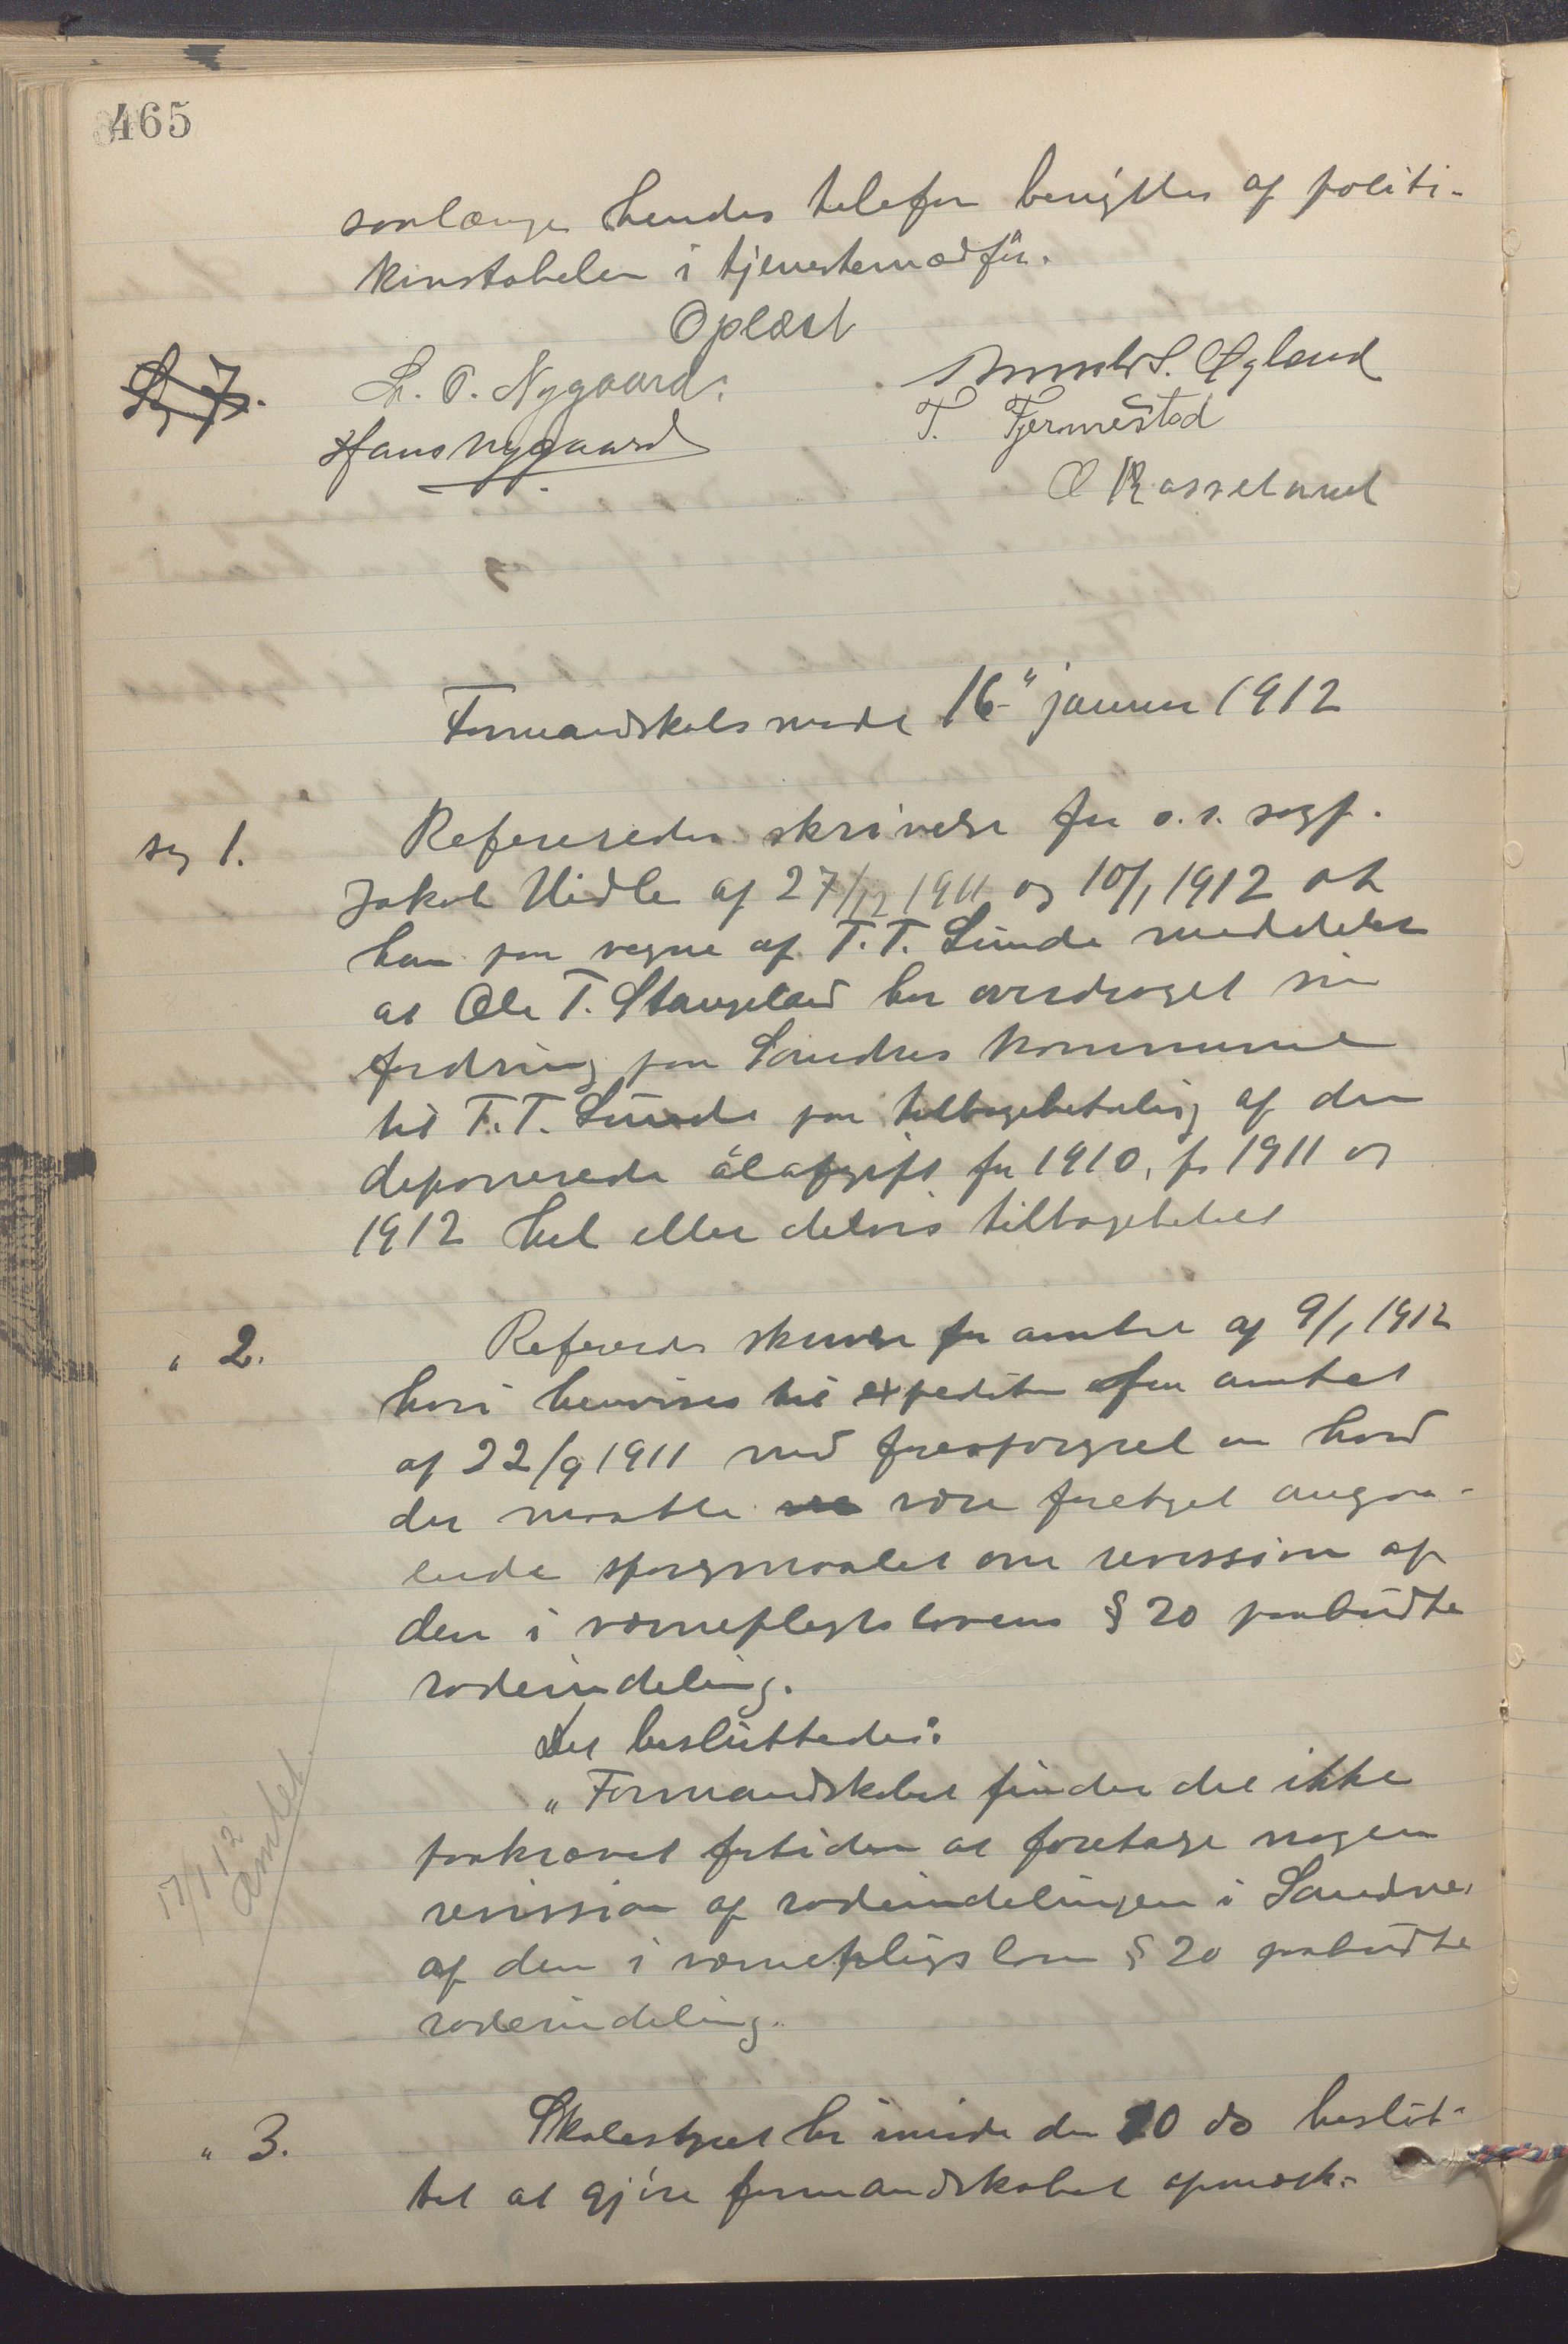 465
saalænge hendes telefon benyttes af politi-
konstabelen i tjenestemedfør.
Oplæst
Sag 7.
L. O. Nygaard.
S. Øgland
Hans Nygaard
T. Fjermestad
O Rosseland
Formandskabsmøde 16" januar 1912
sag 1.
Refereredes skrivelse fra o.r. sagf.
Jakob Uidle af 27/12 1911 og 10/1 1912 at
han paa vegne af T. T. Lunde meddeler
at Ole T. Stangeland har overdraget sin
fordring paa Sandnes kommune
til T. T. Lunde paa tilbagebetaling af den
deponerede ølafgift for 1910, for 1911 og
1912 hel eller delvis tilbagebetalt
" 2.
Refereredes skrivelse fra amtet af 9/1 1912
hvori henvises til expedition fra amtet
af 22/9 1911 med forespørgsel om hvad
der maatte være foretaget angaa-
ende spørgsmaalet om revission af
den i værnepligtslovens § 20 paabudte
rodeinddeling.
Det besluttedes:
17/1 12
Amtet
"Formandskabet finder det ikke
paakrævet for tiden at foretage nogen
revission af rodeindelingen i Sandnes
af den i værnepligslov § 20 paabudte
rodeindeling.
" 3.
Skolestyret har i møde den 10 ds beslut-
tet at gjøre formandskabet opmærk-